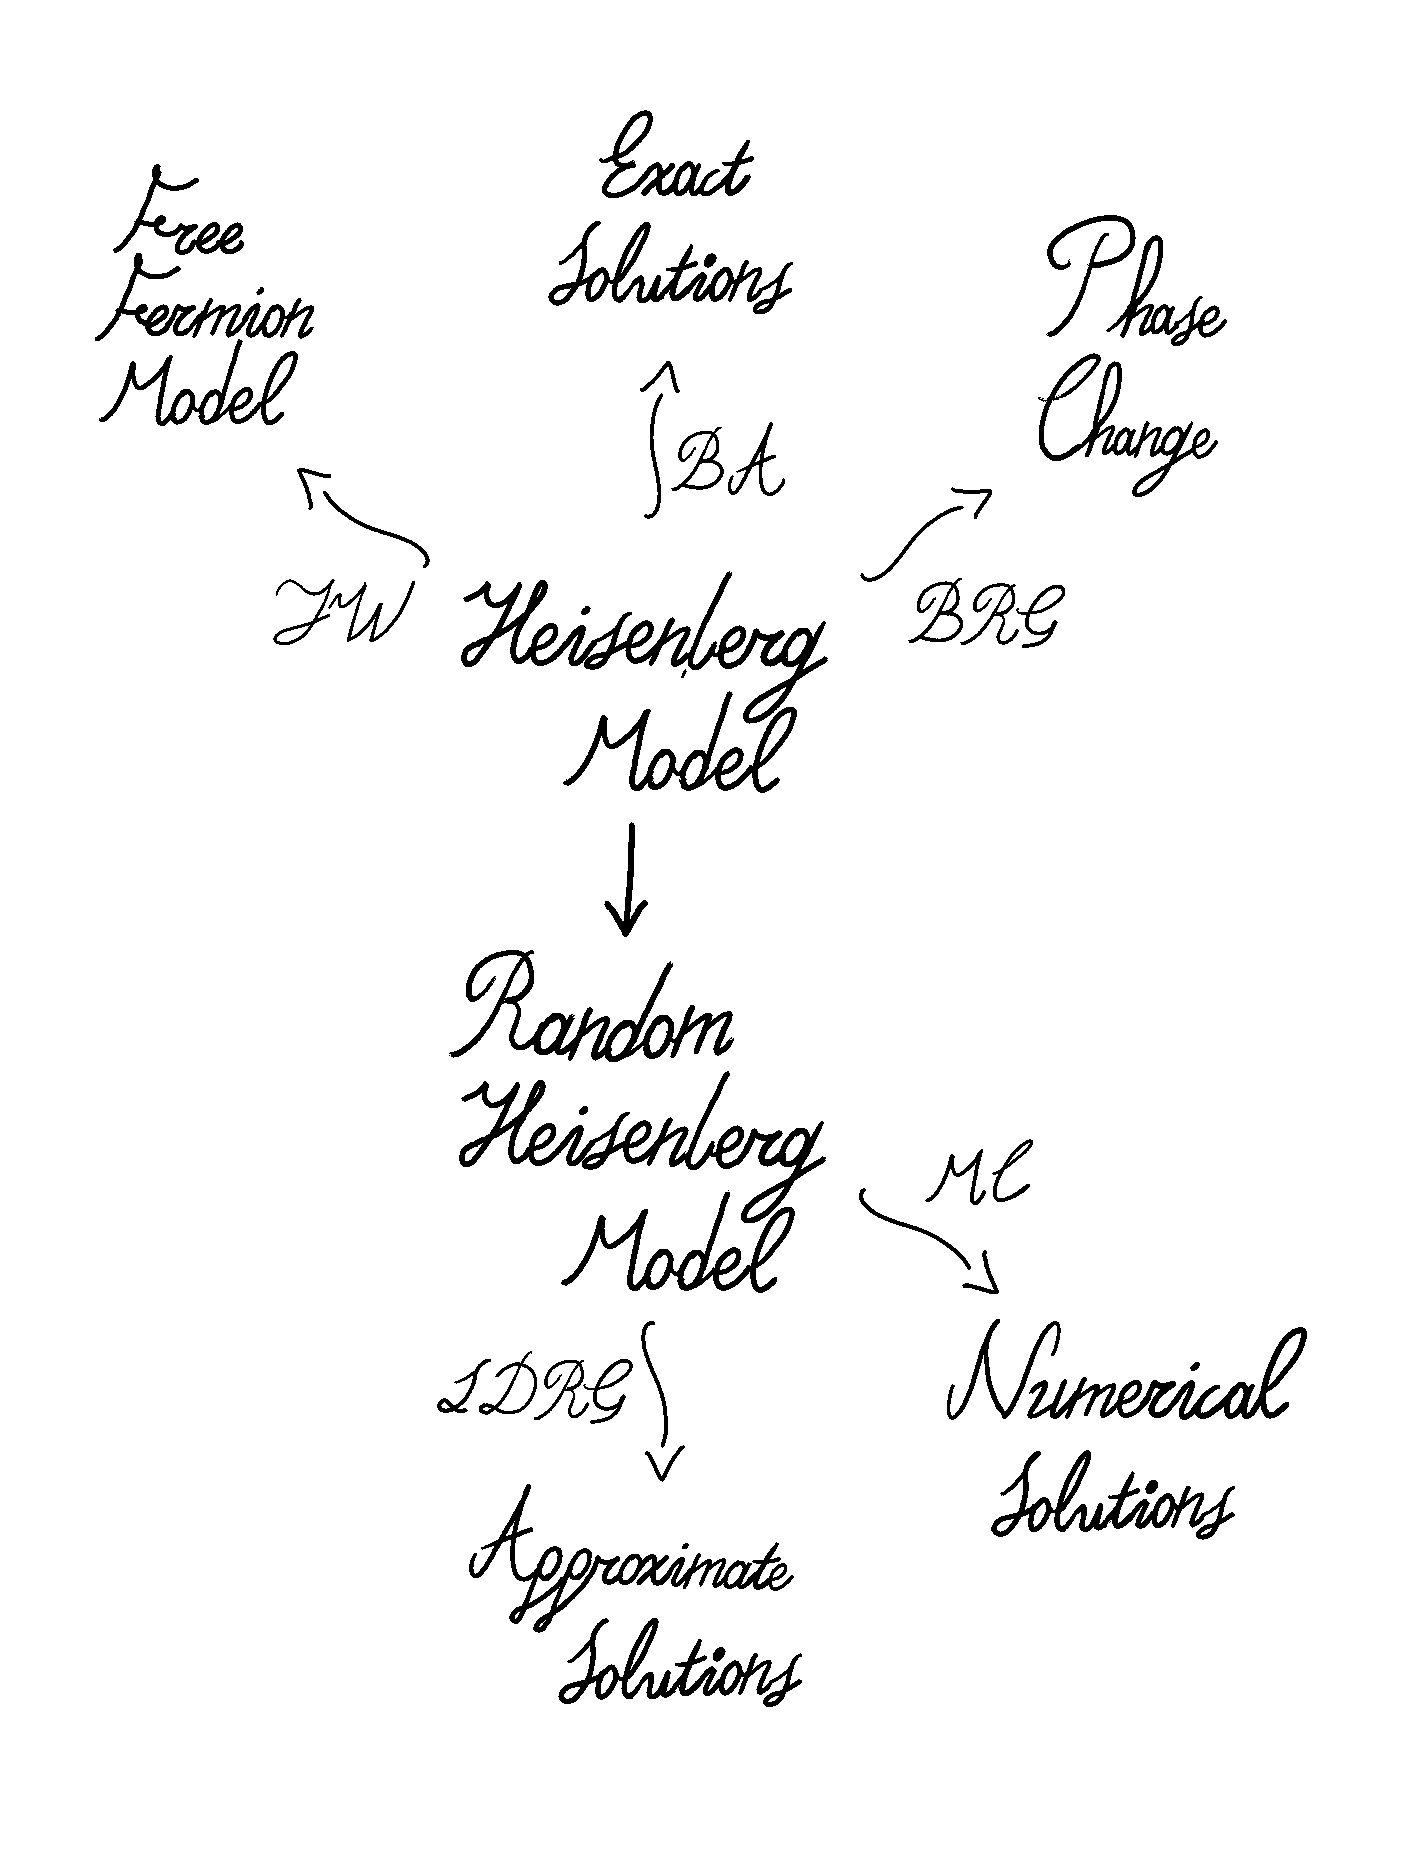 Free
Fermion
Model
Exact
Solutions
Phase
Change
JW
BA
BRG
Heisenberg
Model
Random
Heisenberg
Model
MC
SDRG
Numerical
Solutions
Approximate
Solutions